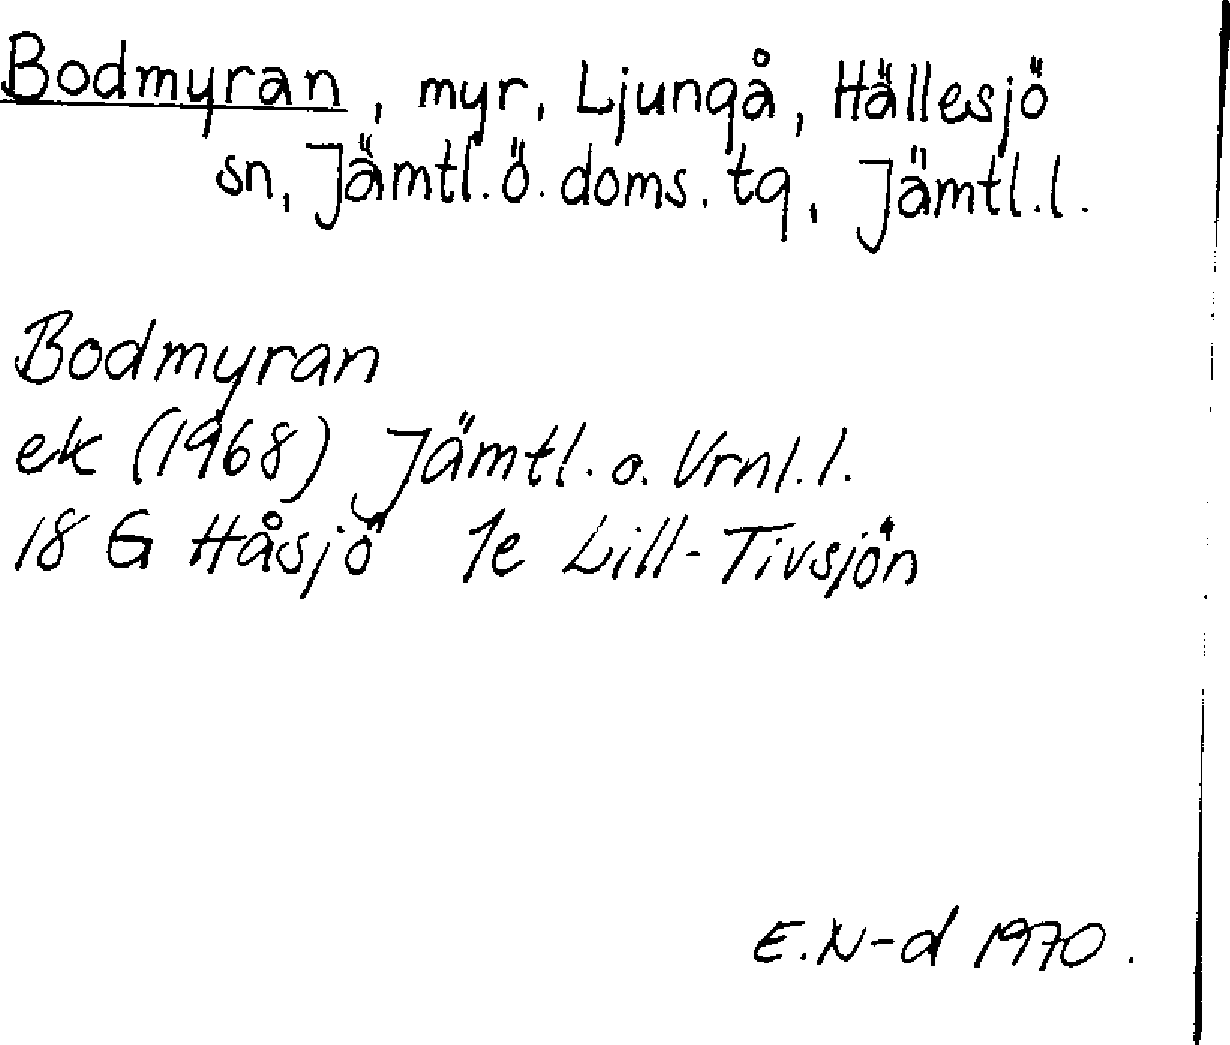 Bodmyran, myr, Ljungå, Hällesjö
sn, Jämtl. ö. doms. tg, Jämtl. l.
Bodmyran
ek (1968) Jämtl. o. Vrnl. l.
18 G Håsjö 1e Lill-Tivsjön
E. N-d 1970.